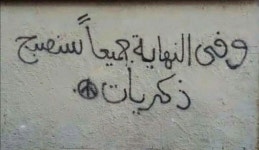 وفي النهاية جميعاً سنصبح
ذكريات